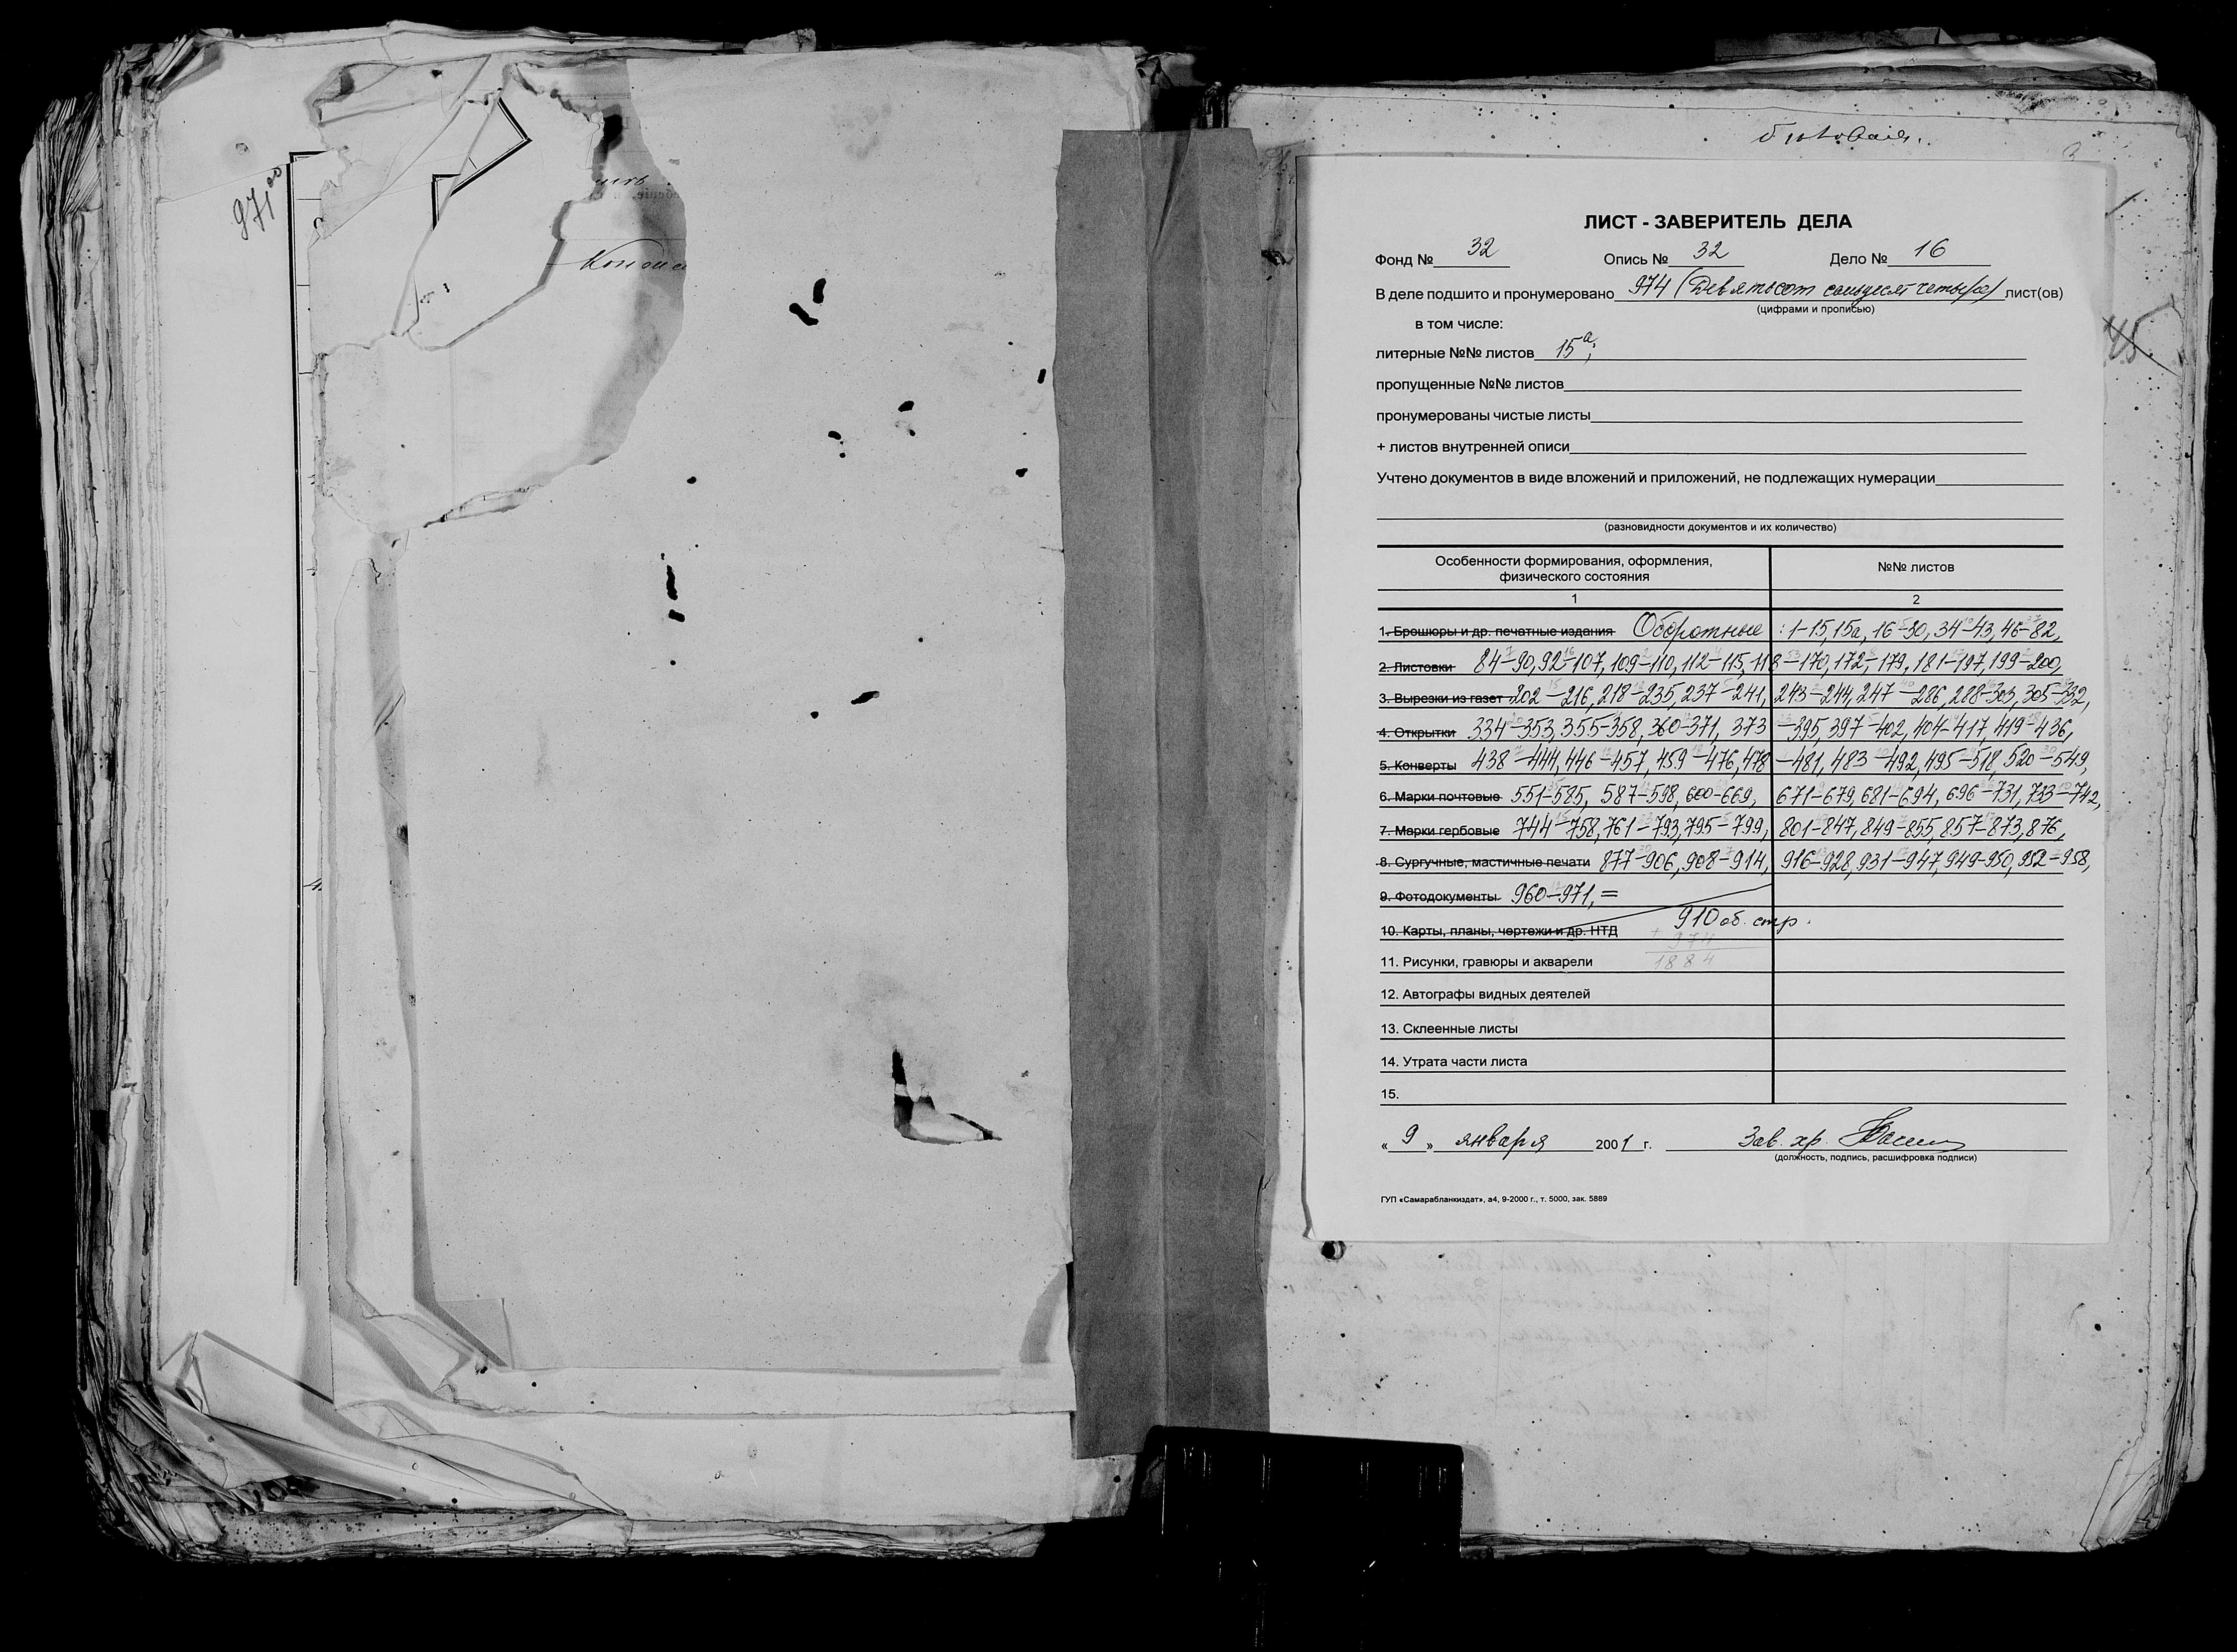 971,00
Кономе
битовая.
ЛИСТ - ЗАВЕРИТЕЛЬ ДЕЛА
Фонд № 32 Опись № 32 Дело № 16
В деле подшито и пронумеровано 974 (Девятьсот семьдесят четыре) лист(ов)
(цифрами и прописью)
в том числе:
литерные №№ листов 15а;
45
пропущенные №№ листов
пронумерованы чистые листы
+ листов внутренней описи
Учтено документов в виде вложений и приложений, не подлежащих нумерации
(разновидности документов и их количество)
Особенности формирования, оформления, физического состояния №№ листов
1 2
1. Брошюры и др. печатные издания Оборотные : 1-15, 15а, 16-30, 34-43, 46-82,
2. Листовки 84-90, 92-107, 109-110, 112-115, 118-170, 172-179, 181-197, 199-200,
3. Вырезки из газет 202-216, 218-235, 237-241, 243-244, 247-286, 288-303, 305-332,
4. Открытки 334-353, 355-358, 360-371, 373-395, 397-402, 404-417, 419-436,
5. Конверты 438-444, 446-457, 459-476, 478-481, 483-492, 495-518, 520-549,
6. Марки почтовые 551-585, 587-598, 600-669, 671-679, 681-694, 696-731, 733-742,
7. Марки гербовые 744-758, 761-793, 795-799, 801-847, 849-855, 857-873, 876,
8. Сургучные, мастичные печати 877-906, 908-914, 916-928, 931-947, 949-950, 952-958,
9. Фотодокументы 960-971, =
910 об. стр.
10. Карты, планы, чертежи и др. НТД + 974
11. Рисунки, гравюры и акварели 1884
12. Автографы видных деятелей
13. Склеенные листы
14. Утрата части листа
15.
« 9 » января 2001 г. Зав. хр.
(должность, подпись, расшифровка подписи)
ГУП «Самарабланкиздат», а4, 9-2000 г., т. 5000, зак. 5889